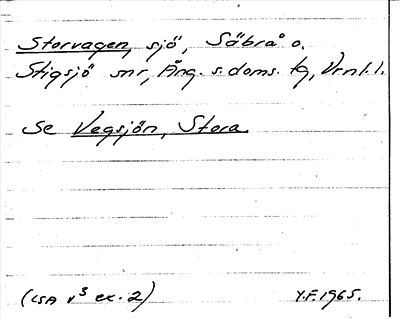 Storvagen, sjö, Säbrå o.
Stigsjö snr, Ång. s. doms. tg, Vrnl. l.
Se Vegsjön, Stora.
(LSA v³ ex. 2) Y.F. 1965.